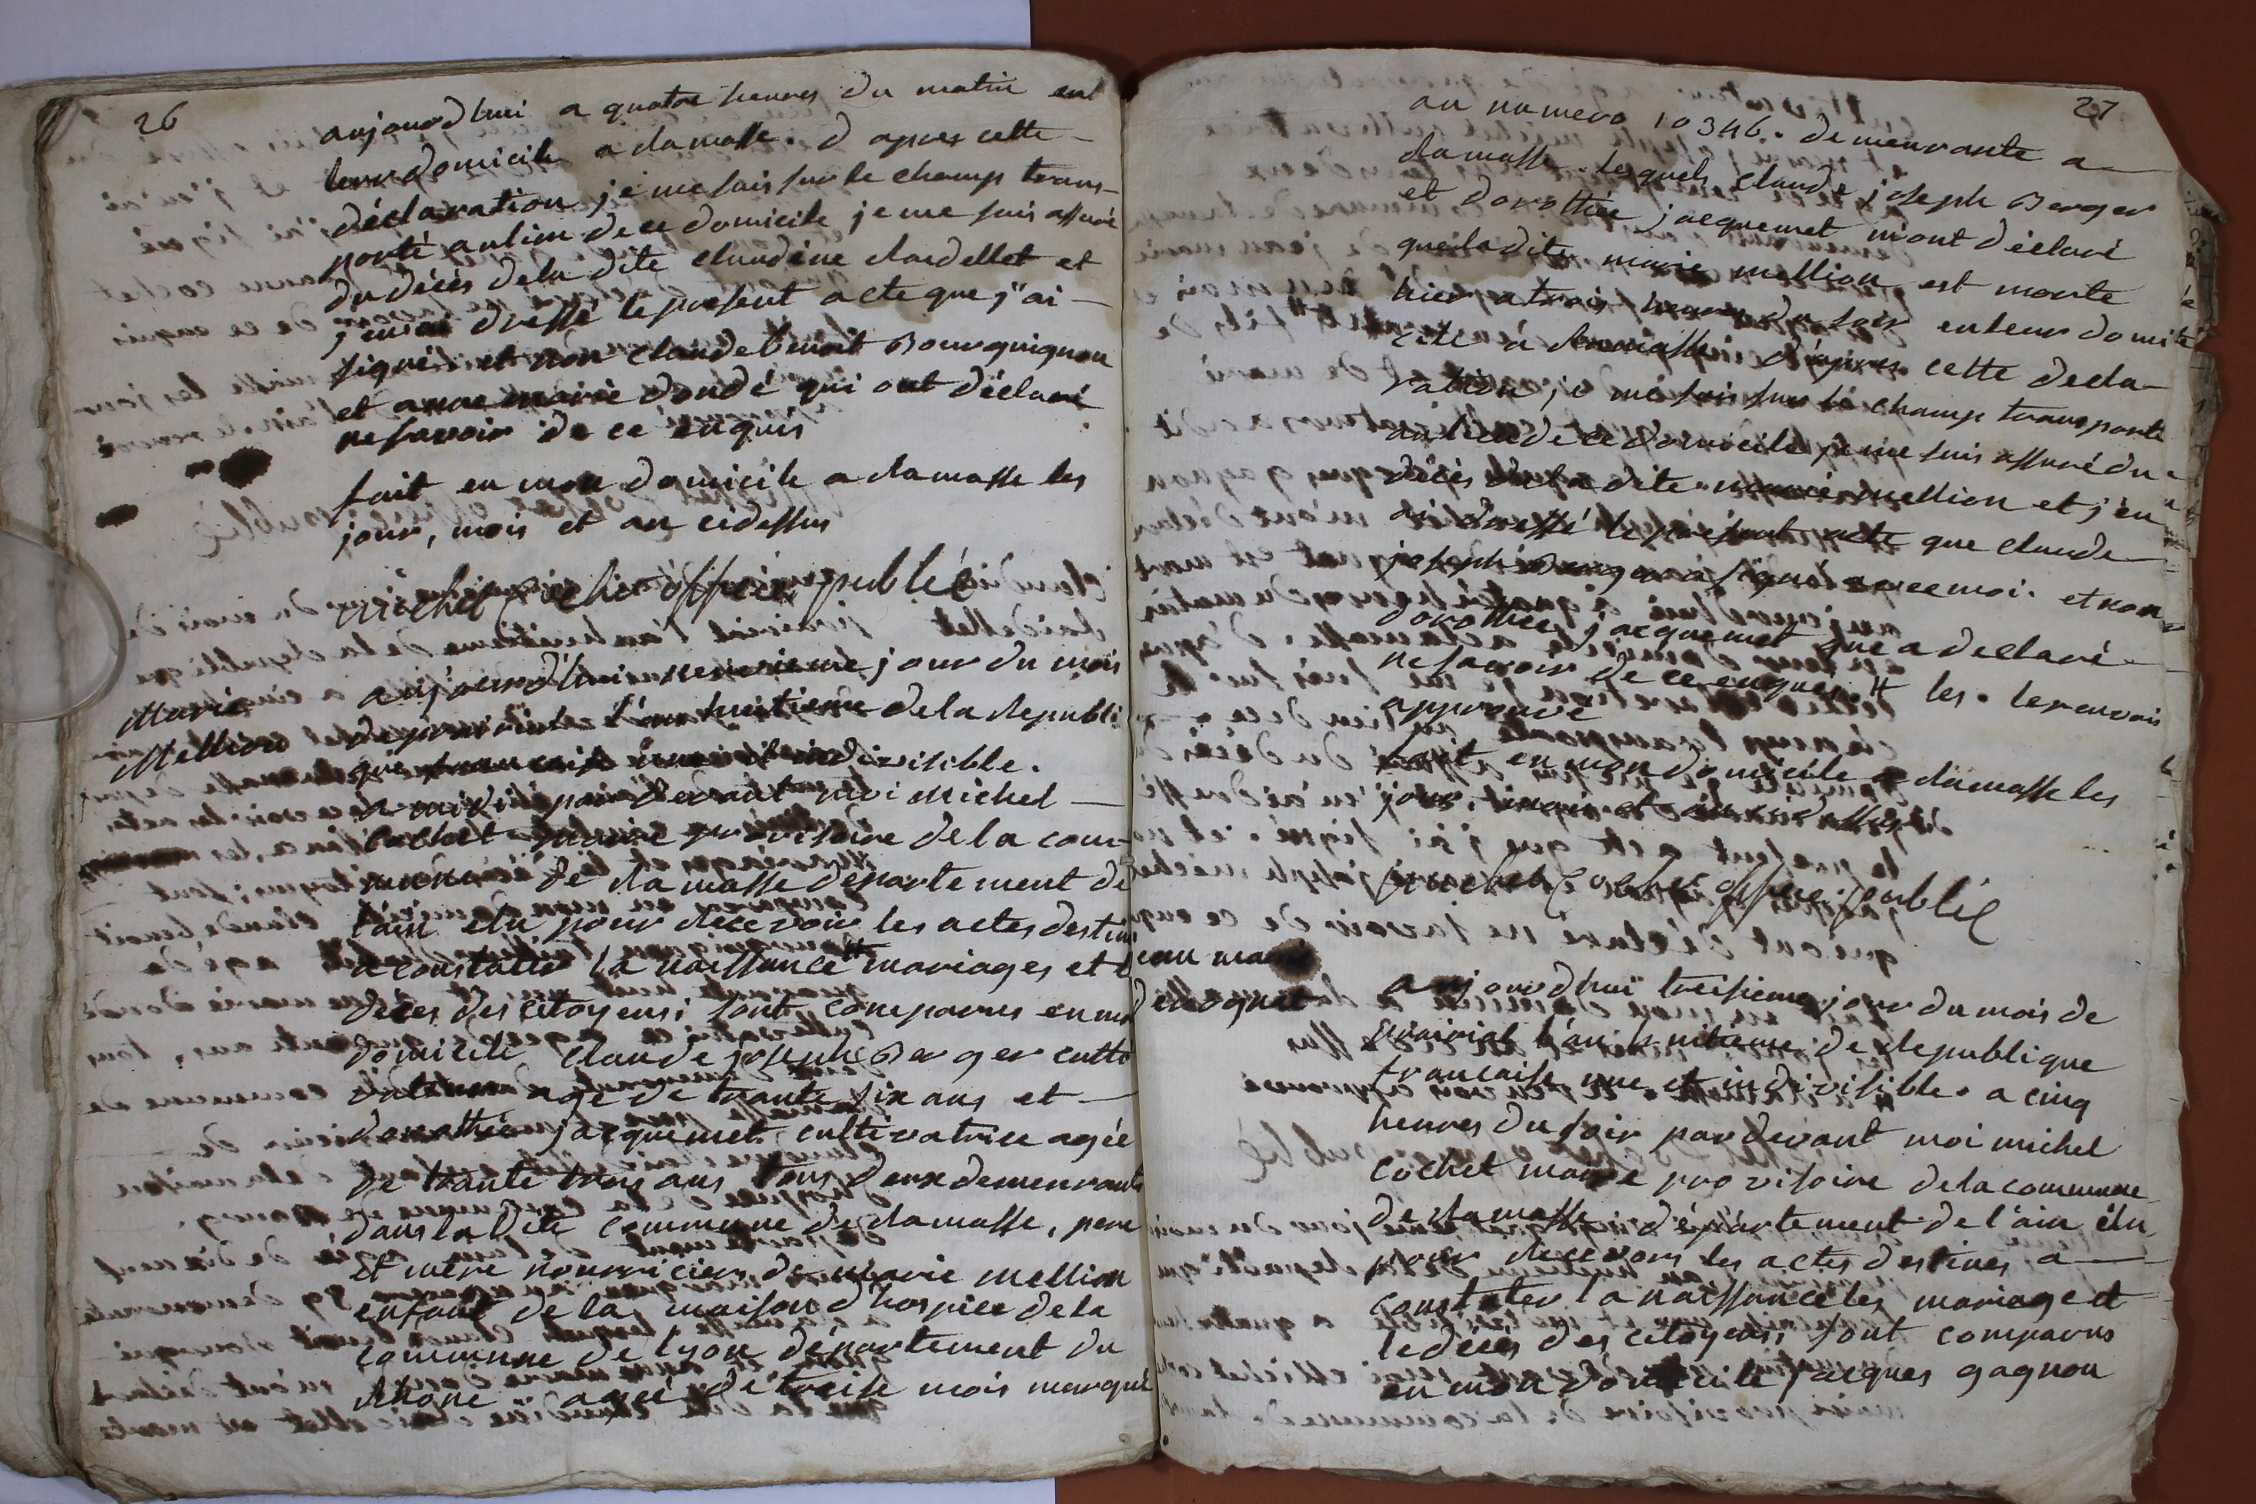 26
aujourdhui a quatre heures du matin en
leur domicile a damasse. d apres cette
déclaration je me suis sur le champ trans-
porté au lieu de ce domicile je me suis assuré
du décés de la dite claudine dardellet et
j'en ai dressé le présent acte que j'ai
signé. et non claude benoit Bourguignon
et anne marie dondé qui ont déclaré
ne savoir de ce enquis
fait en mon domicile a damasse les
jour, mois et an cidessus
michel Cochet officier publié
Marie
Mellion
aujourd'hui jour du mois
de prairial l'an huitieme de la Republi
que francaise une et indivisible.
a midi par devant moi Michel
Cochet maire provisoire de la com-
mune de damasse département de
l'ain élu pour recevoir les actes destinés
a constater la naissance # mariages et
décés des citoyens; sont comparus en mon
domicile claude joseph Berger culti
vateur agé de trante six ans et
dorothée jacquemet cultivatrice agée
de trante trois ans tous deux demeurants
dans la dite commune de damasse, pere
et mére nourriciers de marie mellion
enfant de la maison d'hospice de la
commune de Lyon département du
Rhone agée de treise mois marqué
27
au numero 10346. demeurante a
damasse. lesquels claude joseph Berger
et dorothée jacquemet m'ont déclaré
que la dite marie mellion est morte
hier a trois heures du soir en leur domi
cile a damasse d'apres cette decla-
ration, je me suis sur le champ transporté
au lieu de ce domicile je me suis assuré du
décés de la dite marie mellion et j'en
ai dressé le présent acte que claude
joseph Berger a signé avec moi. et non
dorothée jacquemet qui a declaré
ne savoir de ce enquis. # les. le renvois
approuvé
fait en mon domicile a damasse les
jour, mois et an cidessus
michel Cochet officier publié
aujourdhui treisieme jour du mois de
prairial l'an huitieme de Republique
francaise une et indivisible. a cinq
heures du soir par devant moi michel
Cochet maire provisoire de la commune
de damasse département de l'ain élu
pour recevoir les actes destinés a
constater la naissance les mariage et
le décés des citoyens, sont comparus
en mon domicile jacques gagnon